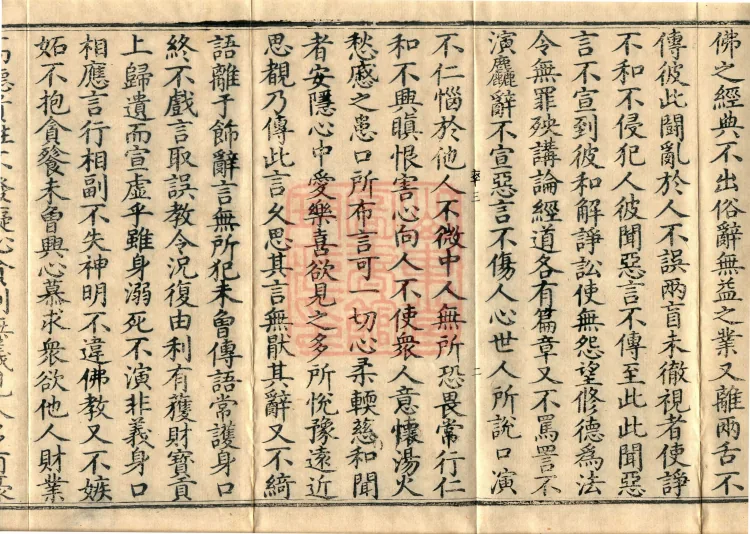 佛之經典不出俗辭無益之業又離兩舌不
傳彼此鬪亂於人不誤兩盲未徹視者使諍
不和不侵犯人彼聞惡言不傳至此此聞惡
言不宣到彼和解諍訟使無怨望修德爲法
令無罪殃講論經道各有篇章又不罵詈不
演麤辭不宣惡言不傷人心世人所說口演
不仁惱於他人不微中人無所恐畏常行仁
和不興瞋恨害心向人不使衆人意懷湯火
愁慼之患口所布言可一切心柔輭慈和聞
者安隱心中愛樂喜欲見之多所悅豫遠近
思覩乃傳此言久思其言無猒其辭又不綺
語離于飾辭言無所犯未曾傳語常護身口
終不戲言取誤教令況復由利有獲財寶貢
上歸遺而宣虛乎雖身溺死不演非義身口
相應言行相副不失神明不違佛教又不嫉
妬不抱貪餮未曾興心慕求衆欲他人財業